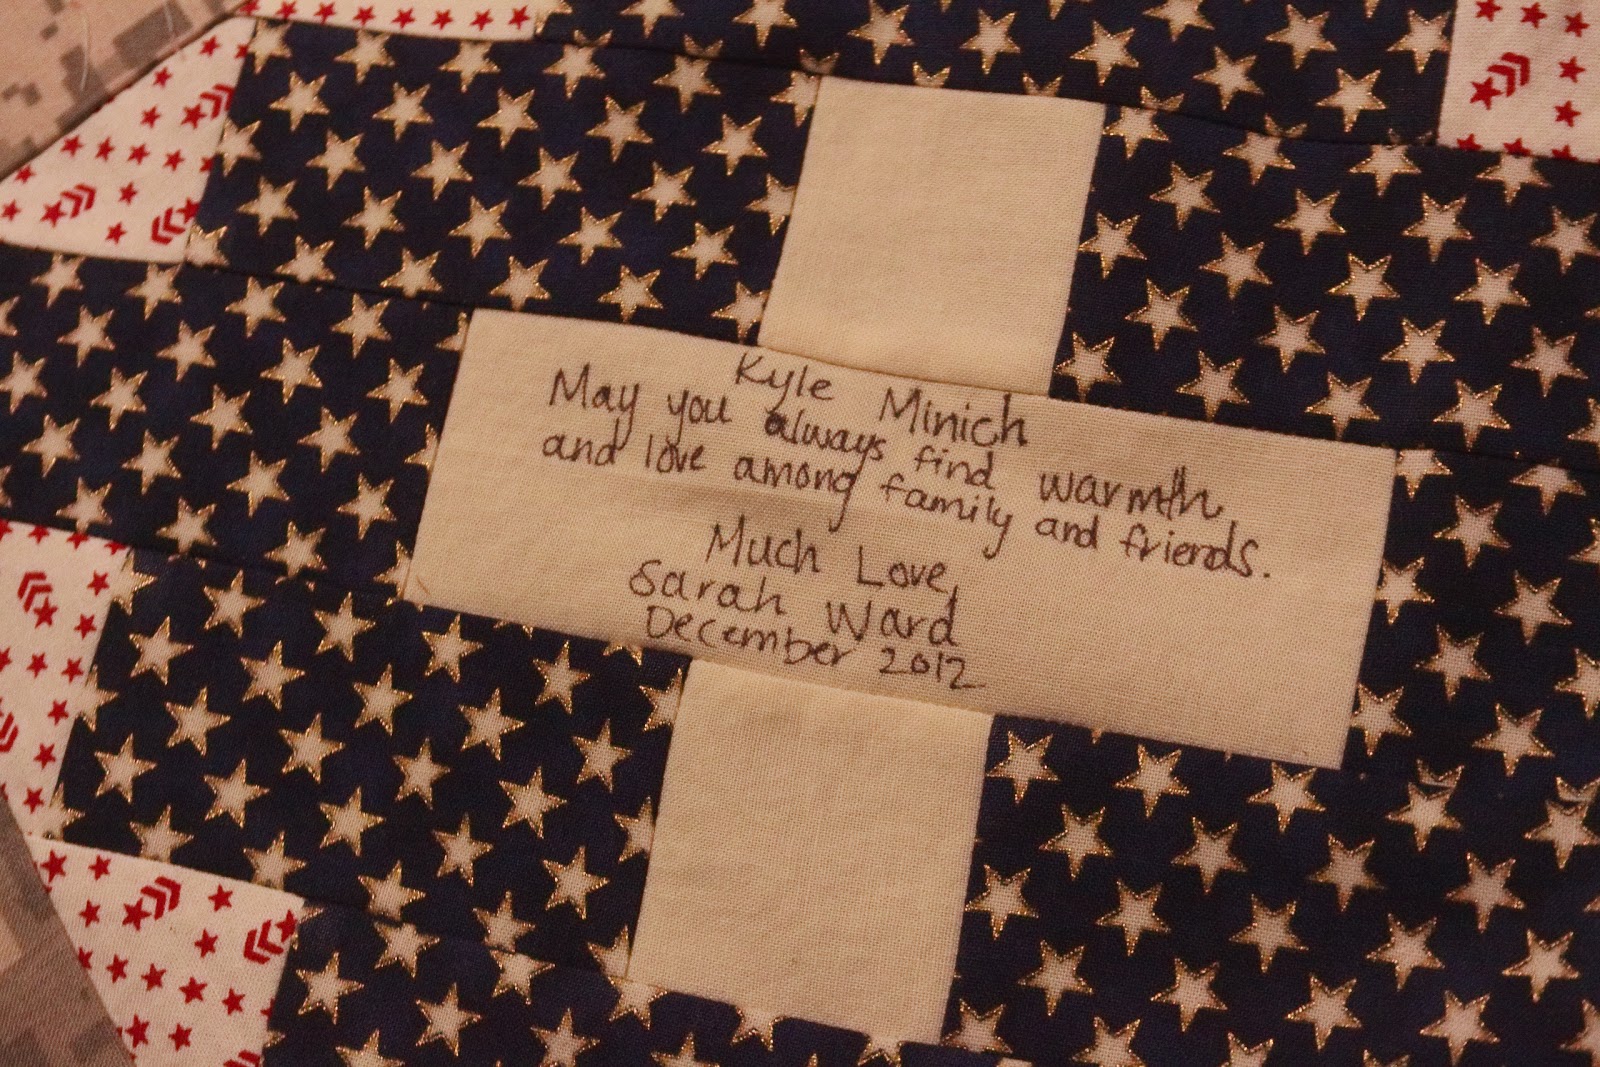 Kyle Minich
May you always find warmth
and love among family and friends.
Much Love,
Sarah Ward
December 2012